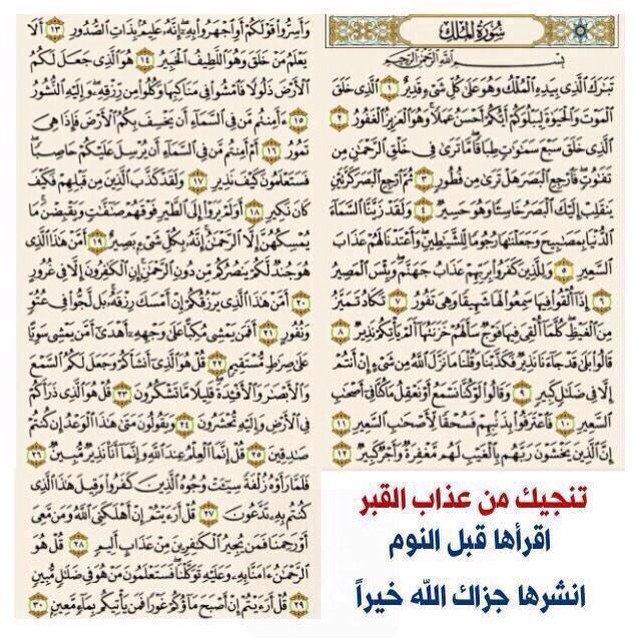 سُورَةُ المُلْكِ
بِسْمِ اللَّهِ الرَّحْمَٰنِ الرَّحِيمِ
تَبَٰرَكَ الَّذِي بِيَدِهِ الْمُلْكُ وَهُوَ عَلَىٰ كُلِّ شَيْءٍ قَدِيرٌ ١ الَّذِي خَلَقَ
الْمَوْتَ وَالْحَيَوٰةَ لِيَبْلُوَكُمْ أَيُّكُمْ أَحْسَنُ عَمَلًا وَهُوَ الْعَزِيزُ الْغَفُورُ ٢
الَّذِي خَلَقَ سَبْعَ سَمَٰوَٰتٍ طِبَاقًا مَّا تَرَىٰ فِي خَلْقِ الرَّحْمَٰنِ مِن
تَفَٰوُتٍ فَارْجِعِ الْبَصَرَ هَلْ تَرَىٰ مِن فُطُورٍ ٣ ثُمَّ ارْجِعِ الْبَصَرَ كَرَّتَيْنِ
يَنقَلِبْ إِلَيْكَ الْبَصَرُ خَاسِئًا وَهُوَ حَسِيرٌ ٤ وَلَقَدْ زَيَّنَّا السَّمَاءَ
الدُّنْيَا بِمَصَٰبِيحَ وَجَعَلْنَٰهَا رُجُومًا لِّلشَّيَٰطِينِ وَأَعْتَدْنَا لَهُمْ عَذَابَ
السَّعِيرِ ٥ وَلِلَّذِينَ كَفَرُوا بِرَبِّهِمْ عَذَابُ جَهَنَّمَ وَبِئْسَ الْمَصِيرُ
٦ إِذَا أُلْقُوا فِيهَا سَمِعُوا لَهَا شَهِيقًا وَهِيَ تَفُورُ ٧ تَكَادُ تَمَيَّزُ
مِنَ الْغَيْظِ كُلَّمَا أُلْقِيَ فِيهَا فَوْجٌ سَأَلَهُمْ خَزَنَتُهَا أَلَمْ يَأْتِكُمْ نَذِيرٌ ٨
قَالُوا بَلَىٰ قَدْ جَاءَنَا نَذِيرٌ فَكَذَّبْنَا وَقُلْنَا مَا نَزَّلَ اللَّهُ مِن شَيْءٍ إِنْ أَنتُمْ
إِلَّا فِي ضَلَٰلٍ كَبِيرٍ ٩ وَقَالُوا لَوْ كُنَّا نَسْمَعُ أَوْ نَعْقِلُ مَا كُنَّا فِي أَصْحَٰبِ
السَّعِيرِ ١٠ فَاعْتَرَفُوا بِذَنبِهِمْ فَسُحْقًا لِّأَصْحَٰبِ السَّعِيرِ ١١
إِنَّ الَّذِينَ يَخْشَوْنَ رَبَّهُم بِالْغَيْبِ لَهُم مَّغْفِرَةٌ وَأَجْرٌ كَبِيرٌ ١٢
وَأَسِرُّوا قَوْلَكُمْ أَوِ اجْهَرُوا بِهِ إِنَّهُ عَلِيمٌ بِذَاتِ الصُّدُورِ ١٣ أَلَا
يَعْلَمُ مَنْ خَلَقَ وَهُوَ اللَّطِيفُ الْخَبِيرُ ١٤ هُوَ الَّذِي جَعَلَ لَكُمُ
الْأَرْضَ ذَلُولًا فَامْشُوا فِي مَنَاكِبِهَا وَكُلُوا مِن رِّزْقِهِ وَإِلَيْهِ النُّشُورُ
١٥ ءَأَمِنتُم مَّن فِي السَّمَاءِ أَن يَخْسِفَ بِكُمُ الْأَرْضَ فَإِذَا هِيَ
تَمُورُ ١٦ أَمْ أَمِنتُم مَّن فِي السَّمَاءِ أَن يُرْسِلَ عَلَيْكُمْ حَاصِبًا
فَسَتَعْلَمُونَ كَيْفَ نَذِيرِ ١٧ وَلَقَدْ كَذَّبَ الَّذِينَ مِن قَبْلِهِمْ فَكَيْفَ
كَانَ نَكِيرِ ١٨ أَوَلَمْ يَرَوْا إِلَى الطَّيْرِ فَوْقَهُمْ صَٰفَّٰتٍ وَيَقْبِضْنَ مَا
يُمْسِكُهُنَّ إِلَّا الرَّحْمَٰنُ إِنَّهُ بِكُلِّ شَيْءٍ بَصِيرٌ ١٩ أَمَّنْ هَٰذَا الَّذِي
هُوَ جُندٌ لَّكُمْ يَنصُرُكُم مِّن دُونِ الرَّحْمَٰنِ إِنِ الْكَٰفِرُونَ إِلَّا فِي غُرُورٍ
٢٠ أَمَّنْ هَٰذَا الَّذِي يَرْزُقُكُمْ إِنْ أَمْسَكَ رِزْقَهُ بَل لَّجُّوا فِي عُتُوٍّ
وَنُفُورٍ ٢١ أَفَمَن يَمْشِي مُكِبًّا عَلَىٰ وَجْهِهِ أَهْدَىٰ أَمَّن يَمْشِي سَوِيًّا
عَلَىٰ صِرَٰطٍ مُّسْتَقِيمٍ ٢٢ قُلْ هُوَ الَّذِي أَنشَأَكُمْ وَجَعَلَ لَكُمُ السَّمْعَ
وَالْأَبْصَٰرَ وَالْأَفْـِٔدَةَ قَلِيلًا مَّا تَشْكُرُونَ ٢٣ قُلْ هُوَ الَّذِي ذَرَأَكُمْ
فِي الْأَرْضِ وَإِلَيْهِ تُحْشَرُونَ ٢٤ وَيَقُولُونَ مَتَىٰ هَٰذَا الْوَعْدُ إِن كُنتُمْ
صَٰدِقِينَ ٢٥ قُلْ إِنَّمَا الْعِلْمُ عِندَ اللَّهِ وَإِنَّمَا أَنَا نَذِيرٌ مُّبِينٌ ٢٦
فَلَمَّا رَأَوْهُ زُلْفَةً سِيئَتْ وُجُوهُ الَّذِينَ كَفَرُوا وَقِيلَ هَٰذَا الَّذِي
كُنتُم بِهِ تَدَّعُونَ ٢٧ قُلْ أَرَءَيْتُمْ إِنْ أَهْلَكَنِيَ اللَّهُ وَمَن مَّعِيَ
أَوْ رَحِمَنَا فَمَن يُجِيرُ الْكَٰفِرِينَ مِنْ عَذَابٍ أَلِيمٍ ٢٨ قُلْ هُوَ
الرَّحْمَٰنُ ءَامَنَّا بِهِ وَعَلَيْهِ تَوَكَّلْنَا فَسَتَعْلَمُونَ مَنْ هُوَ فِي ضَلَٰلٍ مُّبِينٍ
٢٩ قُلْ أَرَءَيْتُمْ إِنْ أَصْبَحَ مَاؤُكُمْ غَوْرًا فَمَن يَأْتِيكُم بِمَاءٍ مَّعِينٍ ٣٠
تنجيك من عذاب القبر
اقرأها قبل النوم
انشرها جزاك الله خيراً